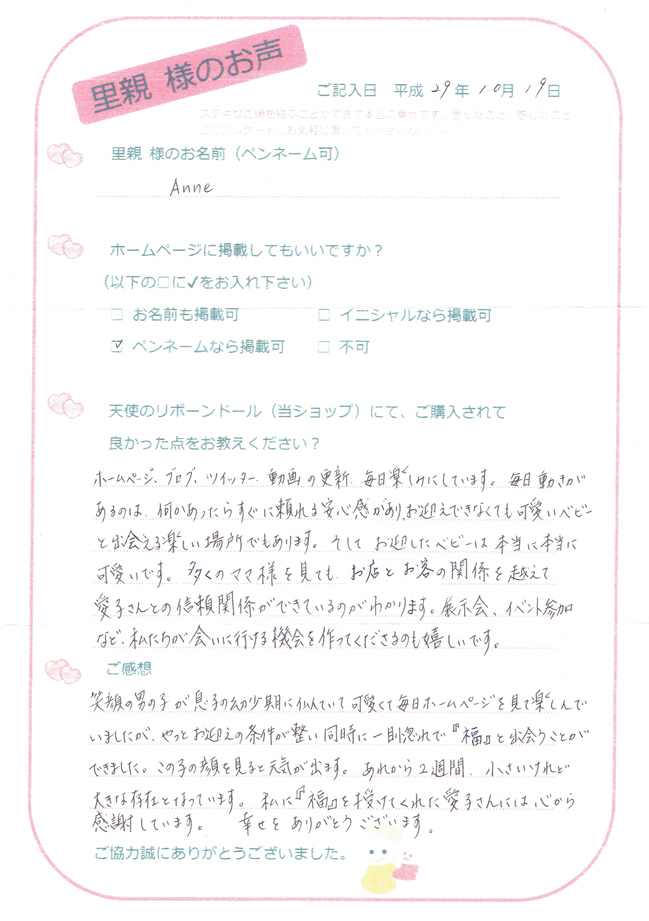 里親 様のお声
ご記入日 平成 29年 10月 19日
ステキなご縁を結ぶことができて本当に幸せです。思ったこと、感じたこと
里親 様のお名前（ペンネーム可）
Anne
ホームページに掲載してもいいですか？
（以下の□に✓をお入れ下さい）
□ お名前も掲載可 □ イニシャルなら掲載可
☑ ペンネームなら掲載可 □ 不可
天使のリボーンドール（当ショップ）にて、ご購入されて
良かった点をお教えください？
ホームページ、ブログ、ツイッター、動画の更新、毎日楽しみにしています。毎日動きが
あるのは、何かあったらすぐに頼れる安心感があり、お迎えできなくても可愛いベビー
と出会える楽しい場所でもあります。そして お迎したベビーは本当に本当に
可愛いです。多くのママ様を見ても、お店とお客の関係を越えて
愛子さんとの信頼関係ができているのがわかります。展示会、イベント参加
など、私たちが会いに行ける機会を作ってくださるのも嬉しいです。
ご感想
笑顔の男の子が息子の幼少期に似ていて可愛くて毎日ホームページを見て楽しんで
いましたが、やっとお迎えの条件が整い同時に一目惚れで『福』と出会うことが
できました。この子の顔を見ると元気が出ます。あれから2週間、小さいけれど
大きな存在となっています。私に『福』を授けてくれた愛子さんには心から
感謝しています。 幸せをありがとうございます。
ご協力誠にありがとうございました。